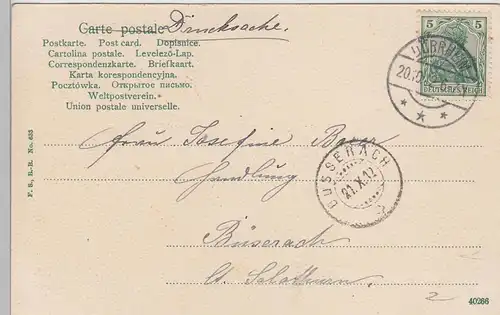 Carte postale Drucksache.
Postkarte. Post card. Dopisnice.
Cartolina postale. Levelező-Lap.
Correspondenzkarte. Briefkaart.
Karta korespondencyjna.
Pocztówka. Открытое письмо.
Weltpostverein.
Union postale universelle.
5 5
DÜRRHEIM
20.
DEUTSCHES REICH
Frau Josefine
Handlung
BUSSERACH
21.X.12
Büserach
Ct. Solothurn
F. S., B.-B. No. 635
2
40266